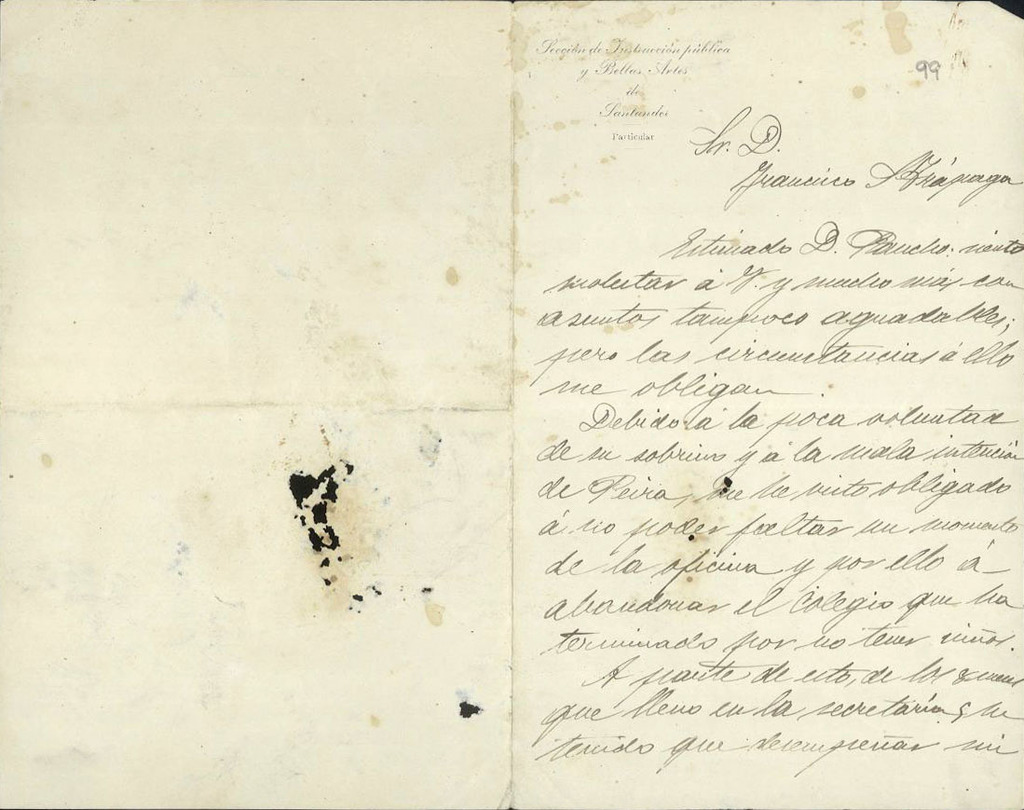 Sección de Instrucción pública
y Bellas Artes
de
Santander
Particular
99
Sr. D.
Francisco S. Trápaga
Estimado D. Pancho: siento
molestar á V. y mucho más con
asuntos tampoco agradables;
pero las circunstancias á ello
me obligan.
Debido á la poca voluntad
de su sobrino y á la mala intención
de Peira, me he visto obligado
á no poder faltar un momento
de la oficina y por ello á
abandonar el Colegio que ha
terminado por no tener niños.
A parte de esto, de los
que llevo en la secretaría, he
tenido que desempeñar mi